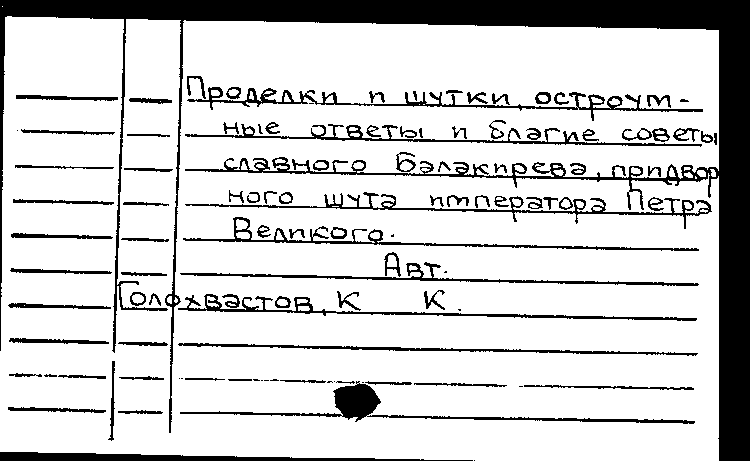 Проделки и шутки, остроум-
ные ответы и благие советы
славного Балакирева, придвор
ного шута императора Петра
Великого.
Авт.
Голохвастов, К К.